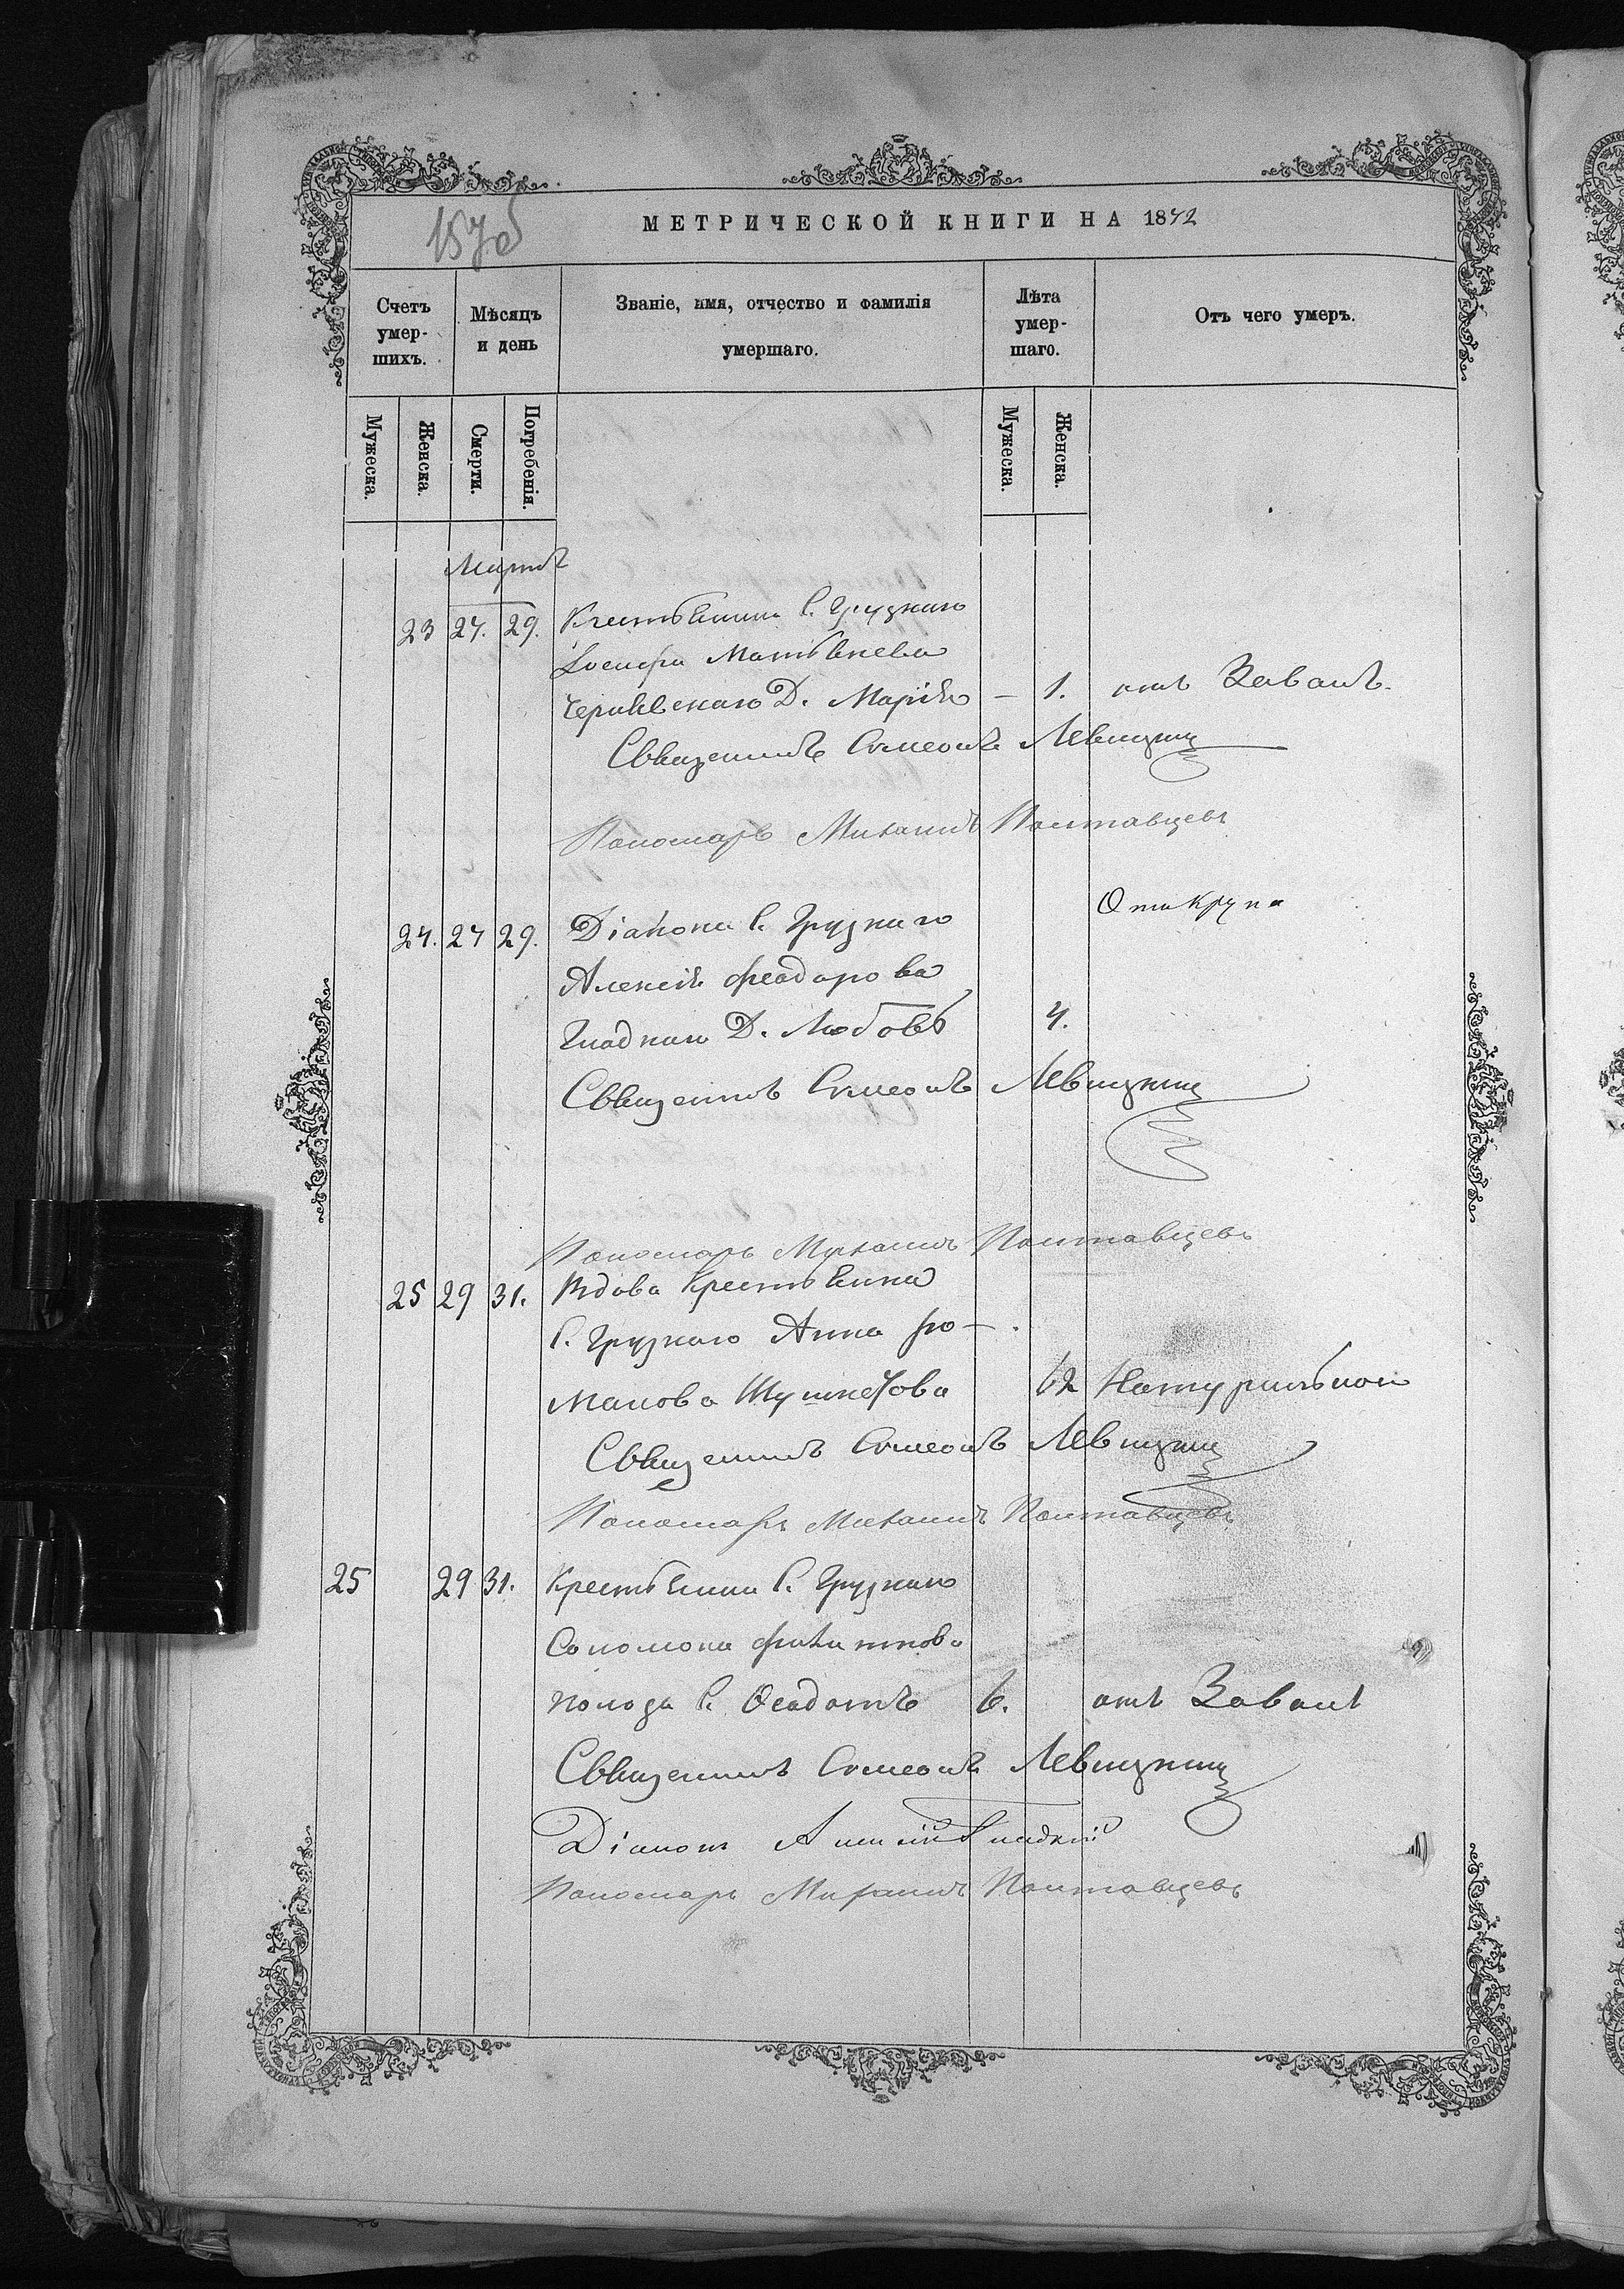 157об
МЕТРИЧЕСКОЙ КНИГИ НА 1872
Счетъ умер-шихъ.
Мѣсяцъ и день
Званіе, имя, отчество и фамилія умершаго.
Лѣта умер-шаго.
Отъ чего умеръ.
Мужеска.
Женска.
Смерти.
Погребенія.
Мужеска.
Женска.
Мартъ
23 27. 29. Крестьянина С. Грузкаго
Іосифа Матвѣева
Д. Марія — 1. отъ
Священникъ Симеонъ Левицкій
Пономарь Михаилъ Полтавцевъ
Отъ крупа
24. 27 29. Діакона С. Грузкаго
Алексія Феодорова
Гладкаго Д. Любовь 4.
Священникъ Симеонъ Левицкій
Пономарь Михаилъ Полтавцевъ
25 29 31. Вдова Крестьянка
С. Грузкаго Анна Ро-
манова 62 Натуральной
Священникъ Симеонъ Левицкій
Пономарь Михаилъ Полтавцевъ
25 29 31. Крестьянина С. Грузкаго
Соломона Филиппова
С. Феодотъ 6. отъ
Священникъ Симеонъ Левицкій
Діаконъ Алексій Гладкій
Пономарь Михаилъ Полтавцевъ